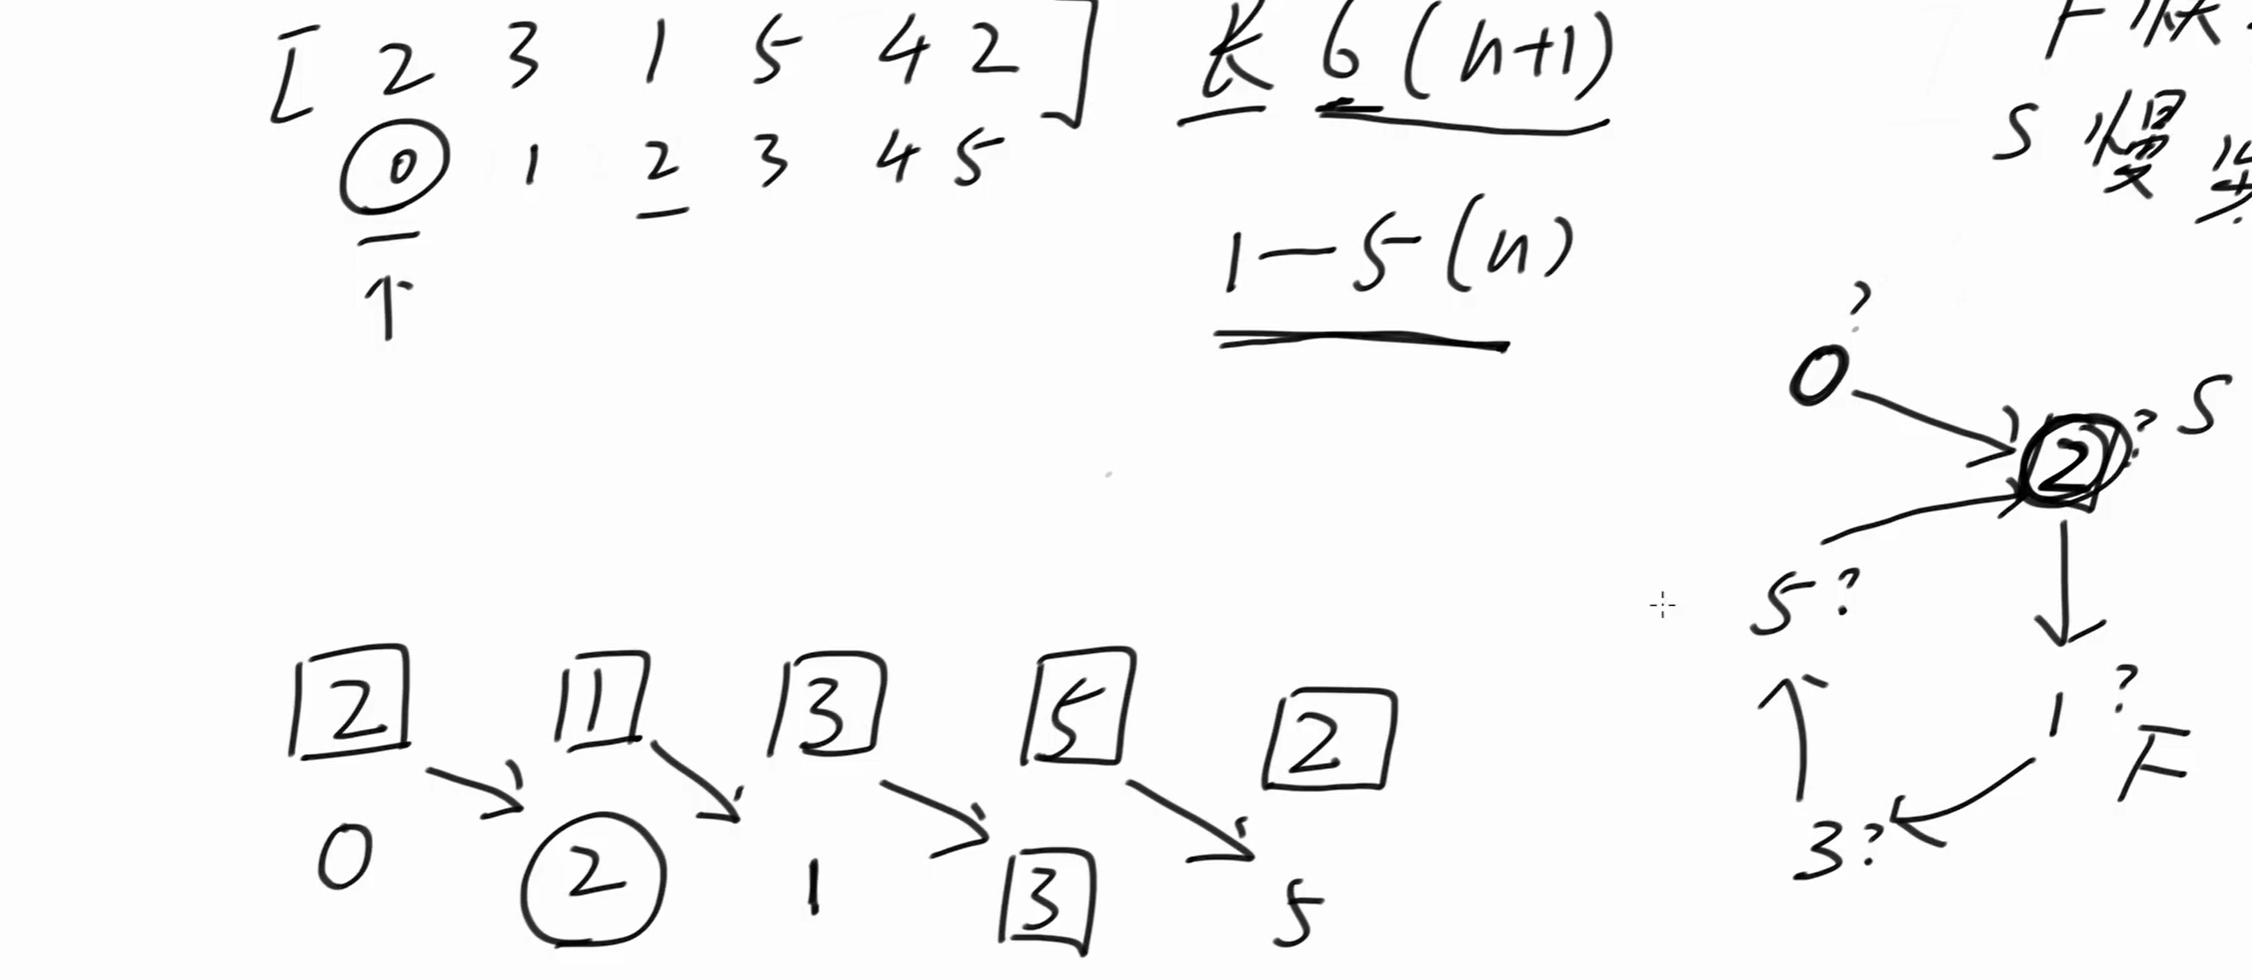 [ 2 3 1 5 4 2 ] 长 6 (n+1)
0 1 2 3 4 5
1-5 (n)
F 快
S 慢 步
?
0
2 ? S
5 ?
1 ?
F
3 ?
2 1 3 5 2
0 2 1 3 5